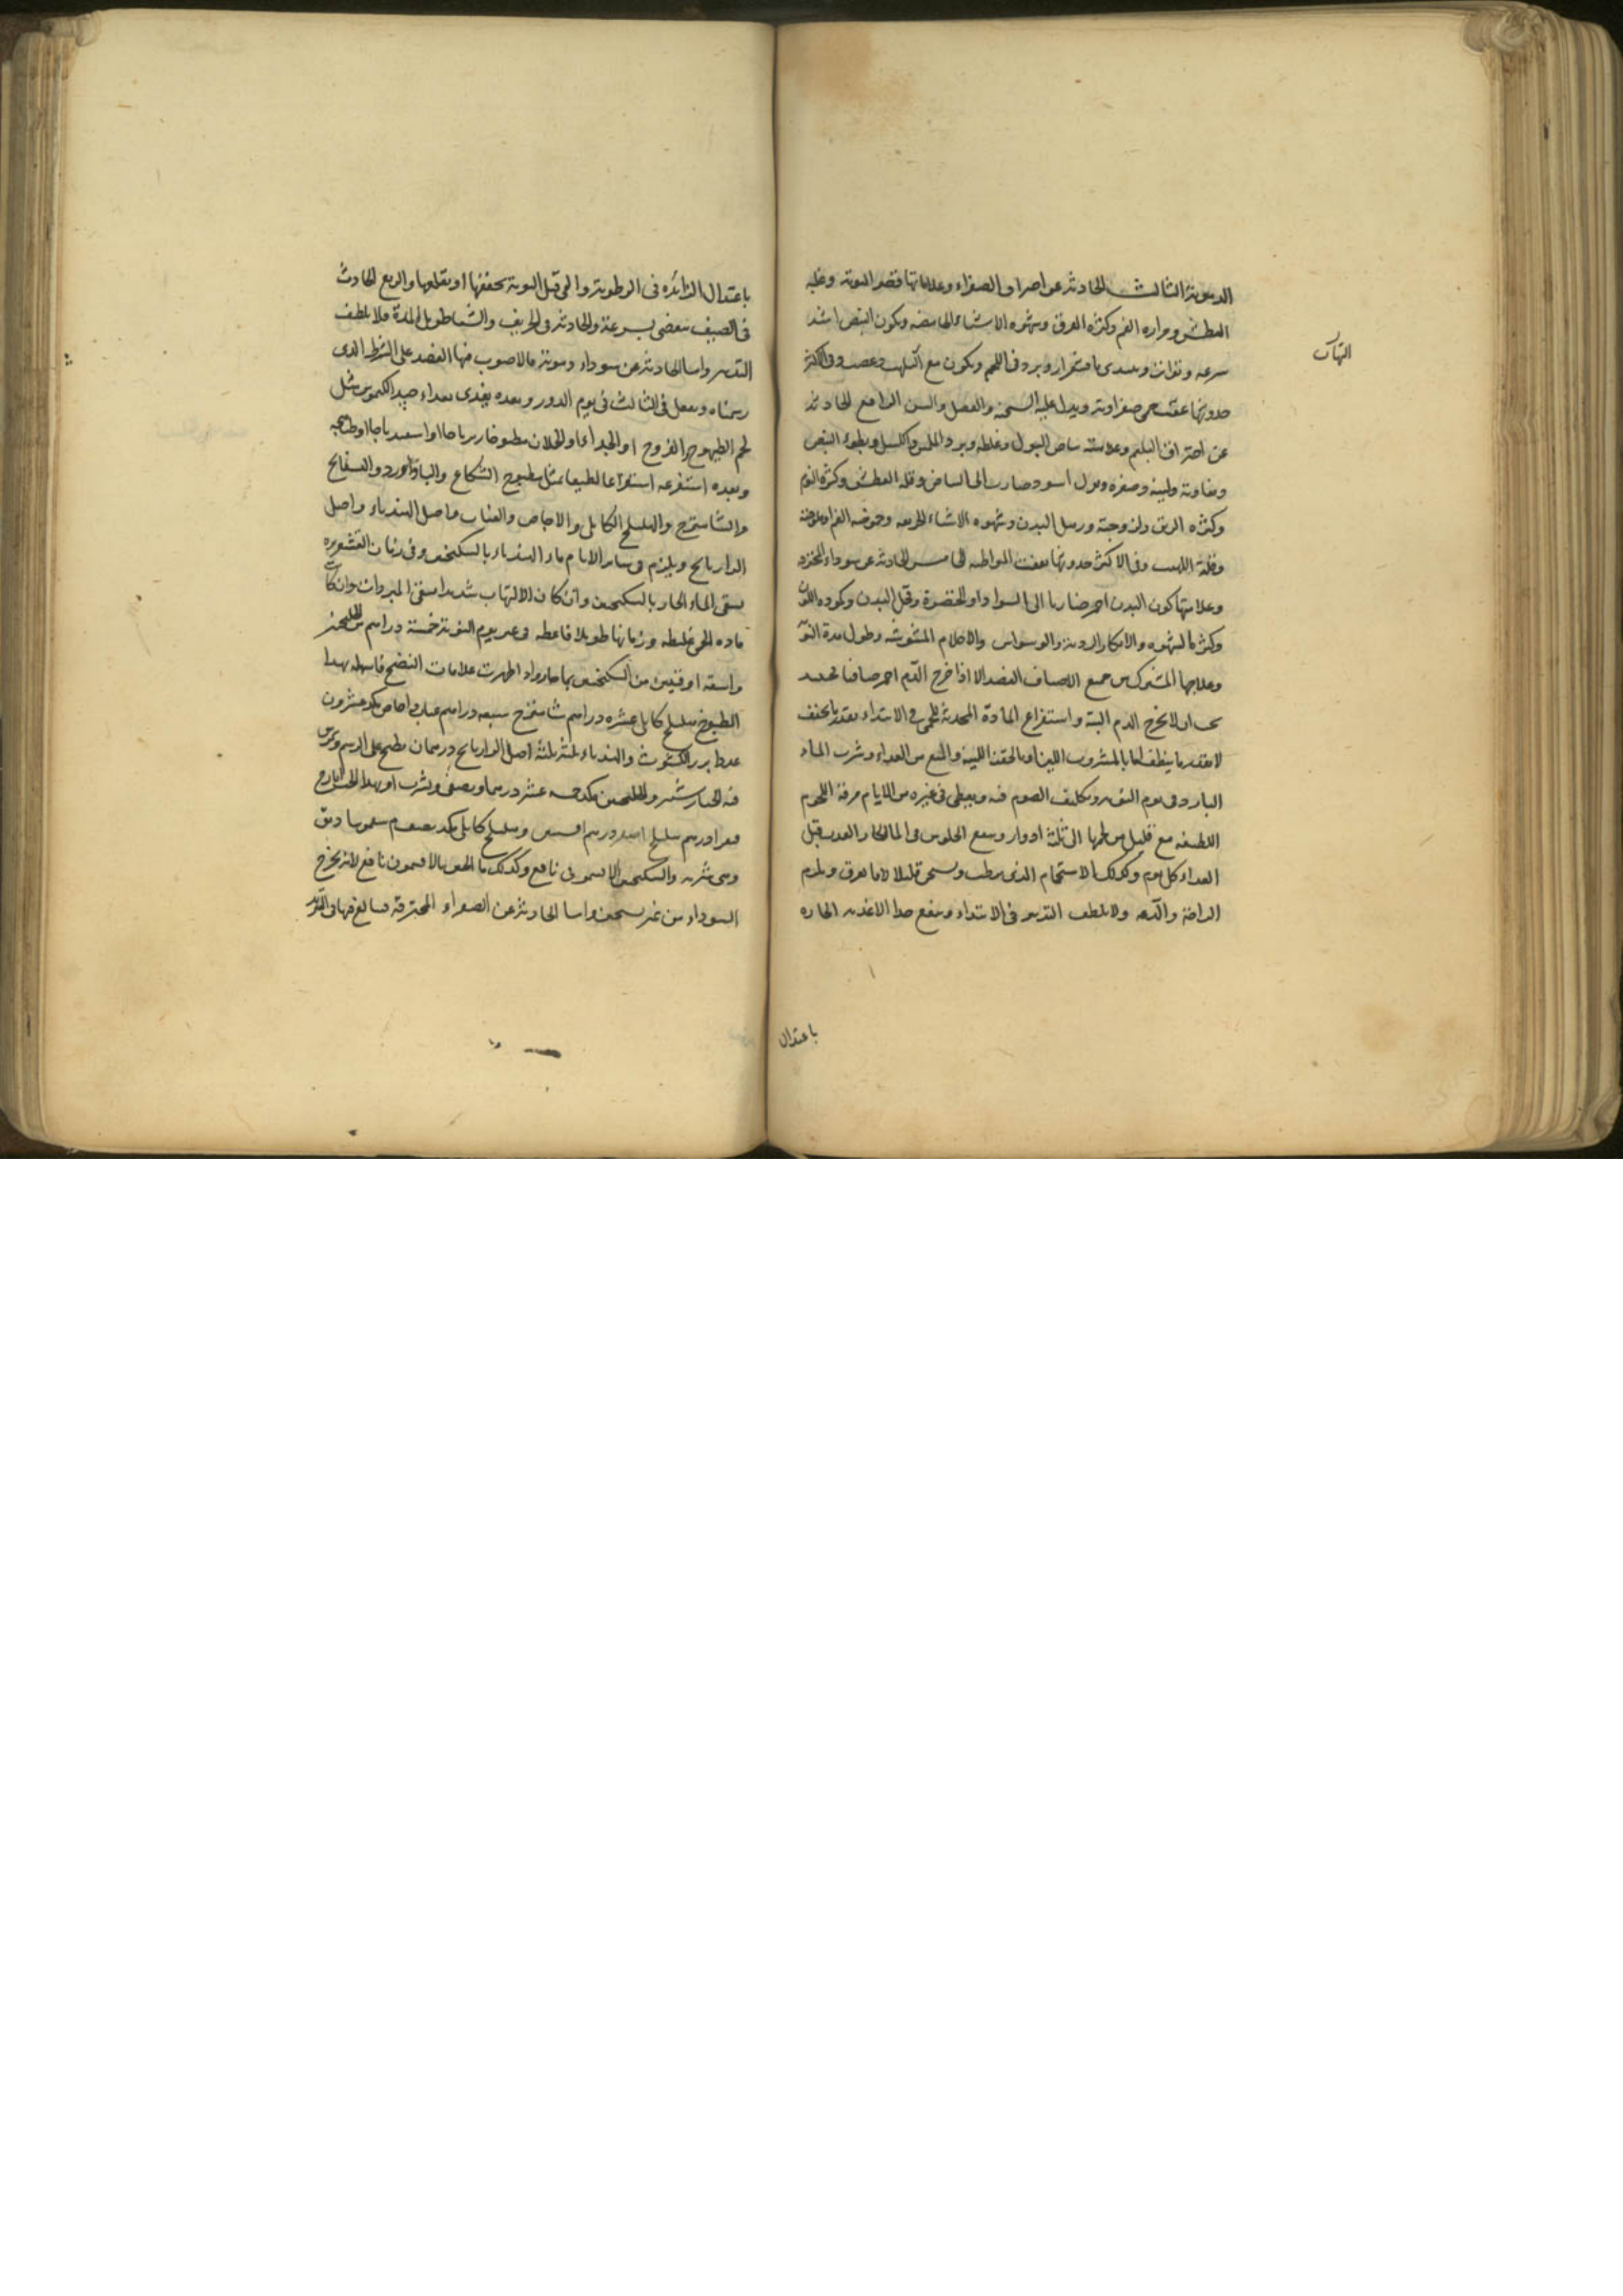 الدموية الثالث الحادثة عن احتراق الصفراء وعلاماتها قصر النوبة وغلبة
العطش ومرارة الفم وكثرة العرق وشهوة الاشياء الحامضة ويكون النبض اشد
سرعة وتواترا ويبتدي باقشعرار وبرد في اللحم ويكون مع التهاب وغضب وفي الاكثر
حدوثها عقيب حمى صفراوية ويدل عليه السحنة والفصل والسن الرابع الحادثة
عن احتراق البلغم وعلامته بياض البول وغلظه وبرد الملمس والكسل وبطوء النبض
وتفاوته ولينه وصغره وبول اسود صارب الى البياض وقلة العطش وكثرة النوم
وكثرة الريق ولزوجته وترهل البدن وشهوة الاشياء الحريفة وحموضة الفم او ملوحته
وقلة اللهب وفي الاكثر حدوثها عقيب المواظبة الخامس الحادثة عن سوداء
وعلامتها كون البدن احمر ضاربا الى السواد او الخضرة وقحل البدن وكمودة اللون
وكثرة الشهوة والافكار الردية والوسواس والاحلام المشوشة وطول مدة النوبة
وعلاجها المشترك من جميع الاصناف الفصد الا اذا خرج الدم احمر صافيا فحينئذ
يجب ان لا يخرج الدم البتة واستفراغ المادة المحدثة للحمى في الابتداء بقدر ما يخفف
لا بقدر ما ينظف اما بالمشروب اللين او بالحقنة اللينة والمنع من الغذاء وشرب الماء
البارد في يوم النوبة وتكليف الصوم فيه ويعطى في غيره من الايام مرقة اللحوم
اللطيفة مع قليل من لحمها الى ثلثة ادوار وينفع الجلوس في الماء الحار العذب قبل
الغداء كل يوم وكذلك الاستحمام الذي يرطب ويسخن قليلا لا ما يعرق ويلزم
الراحة والدعة ولا يلطف التدبير في الابتداء وينفع جدا الاغذية الحارة
التهاب
باعتدال
باعتدال الزائدة في الرطوبة والقي قبل النوبة يخففها او يقلعها والربع الحادث
في الصيف ينقضي بسرعة والحادثة في الخريف والشتا طويل المدة فلا يلطف
التدبير واما الحادثة عن سوداء دموية فالاصوب فيها الفصد على الشرط الذي
رسمناه ويفعل في الثالث في يوم الدور وبعده يغذى بغداء جيد الكيموس مثل
لحم الطيهوج والفروج او الجداء او الحملان مطبوخا زيرباجا او اسفيدباجا او طباهجة
وبعده استفرغه استفراغا لطيفا بمثل مطبوخ الشكاع والباداورد والبسفايج
والشاهترج والهليلج الكابلي والاجاص والعناب واصل الهندباء واصل
الرازيانج ويلزم في سائر الايام ماء الهندباء بالسكنجبين وفي زمان القشعريرة
يسقى الماء الحار بالسكنجبين وان كان الالتهاب شديدا سقي المبردات وان كانت
مادة الحمى غليظة وزمانها طويلا فاعطه في غير يوم النوبة خمسة دراهم من الجلنجبين
واسقه اوقيتين من السكنجبين بماء حار واذا ظهرت علامات النضج فاسهله بهذا
الطبوخ هليلج كابلي عشرة دراهم شاهترج سبعة دراهم عناب واجاص مكد عشرون
عددا بزر الكشوث والهندباء ثلثة ثلثة اصل الرازيانج درهمان يطبخ على الرسم ويمرس
فيه الخيار شنبر والجلنجبين مكد خمسة عشر درهما ويصفى ويشرب او بهذا الحب ايارج
فيقرا درهم هليلج اصفر درهم
وهي شربة والسكنجبين الافتيموني نافع وكذلك ماء الجبن بالافتيمون نافع لانه يخرج
السوداء من غير تسخين واما الحادثة عن الصفراء المحترقة فبالغ فيها في التبريد